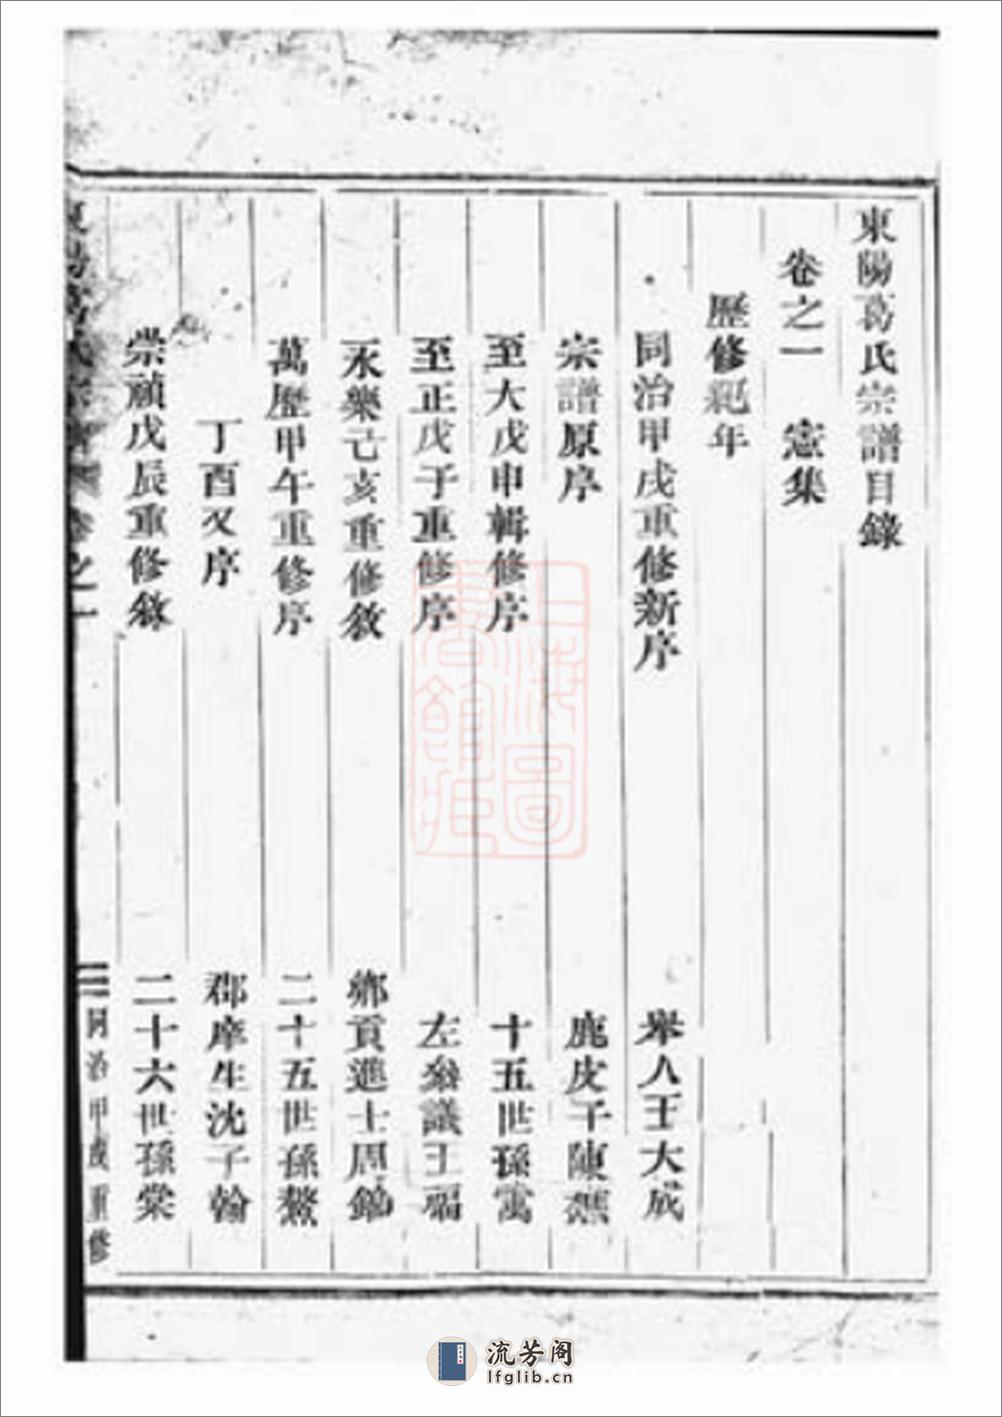 東陽葛氏宗譜目錄
卷之一　憲集
歷修紀年
同治甲戌重修新序　舉人王大成
宗譜原序　鹿皮子陳樵
至大戊申輯修序　十五世孫寓
至正戊子重修序　左叅議王福
永樂己亥重修敘　鄉貢進士周鏑
萬歷甲午重修序　二十五世孫鰲
丁酉又序　郡庠生沈子翰
崇禎戊辰重修敘　二十六世孫棠
東陽葛氏宗譜　卷之一　同治甲戌重修
上海圖書館藏
流芳阁
lfglib.cn